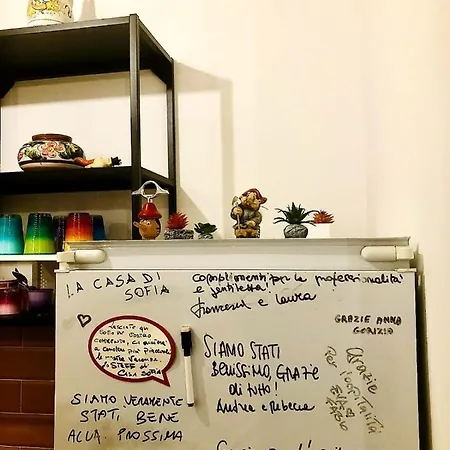 LA CASA DI
SOFIA
complimenti per la professionalità
e gentilezza!
Francesco e Laura
GRAZIE ANNA
GORIZIA
LASCIATE QUI
VOSTRO
COMMENTO, CI AIUTERÀ
A
LO STAFF di
CASA SOFIA
SIAMO STATI
BENISSIMO, GRAZIE
DI TUTTO!
Andrea e Rebecca
Grazie
Per l'ospitalità
SIAMO VERAMENTE
STATI BENE
ALLA PROSSIMA